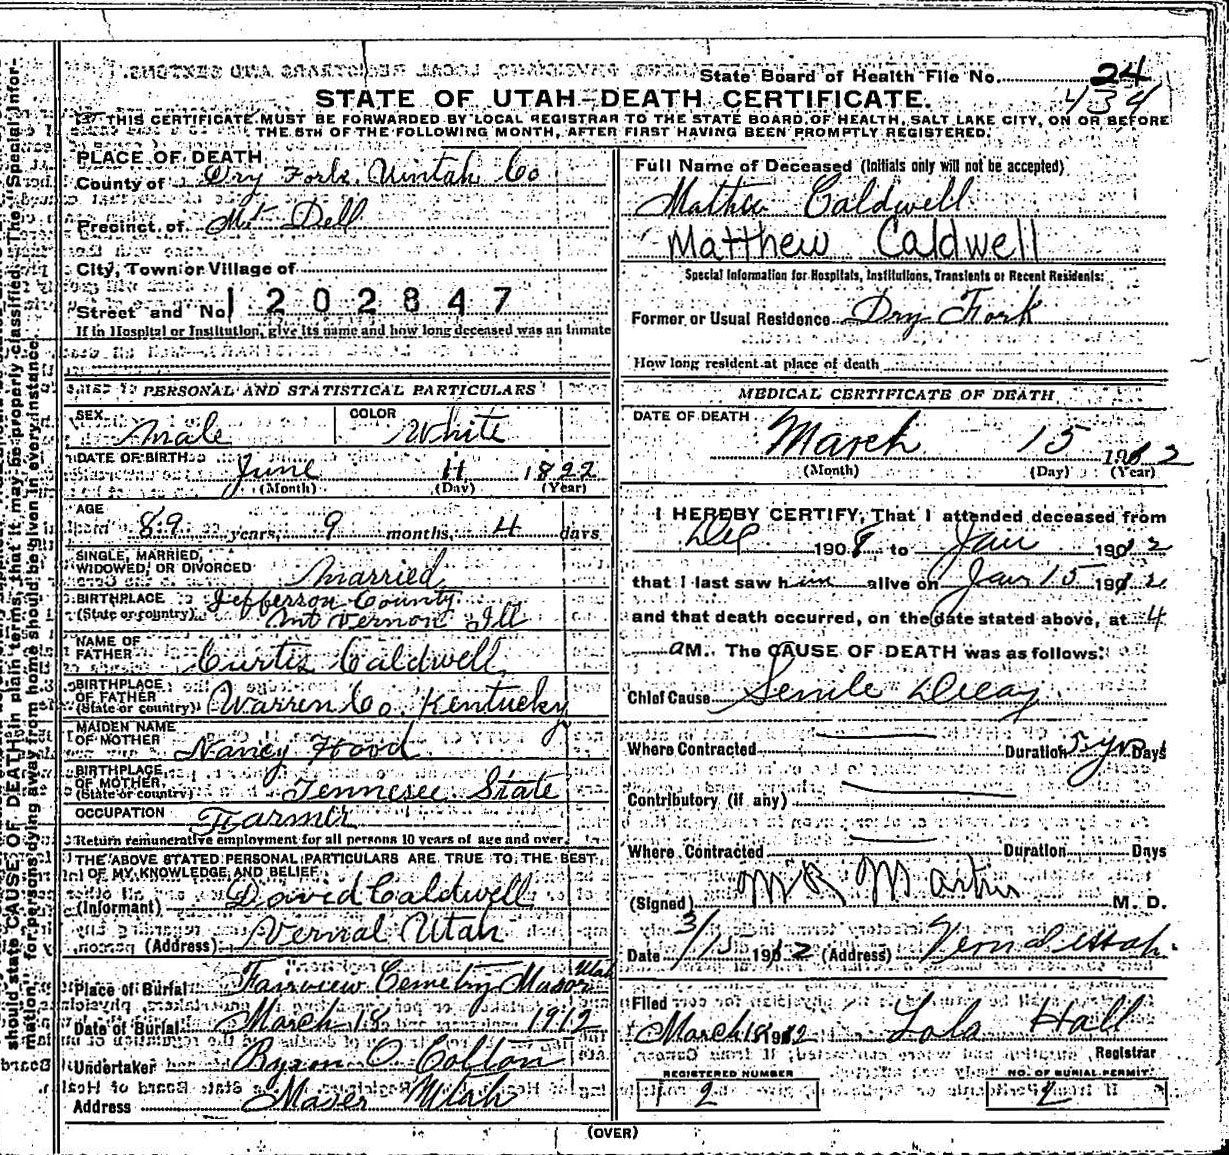 State Board of Health File No. 24
434
STATE OF UTAH–DEATH CERTIFICATE.
THIS CERTIFICATE MUST BE FORWARDED BY LOCAL REGISTRAR TO THE STATE BOARD OF HEALTH, SALT LAKE CITY, ON OR BEFORE
THE 5TH OF THE FOLLOWING MONTH, AFTER FIRST HAVING BEEN PROMPTLY REGISTERED.
should state CAUSE OF DEATH in plain terms, that it may be properly classified. The "Special Infor-
mation" for persons dying away from home should be given in every instance.
PLACE OF DEATH
County of Dry Fork. Uintah Co
Precinct of Mt Dell
City, Town or Village of
Street and No. 1202847
If in Hospital or Institution, give its name and how long deceased was an inmate
PERSONAL AND STATISTICAL PARTICULARS
SEX COLOR
Male White
DATE OF BIRTH
June 11 1822
(Month) (Day) (Year)
AGE
89 years, 9 months, 4 days
SINGLE, MARRIED,
WIDOWED, OR DIVORCED Married
BIRTHPLACE Jefferson County
(State or country) Mt Vernon Ill
NAME OF
FATHER Curtis Caldwell
BIRTHPLACE
OF FATHER
(State or country) Warren Co. Kentucky
MAIDEN NAME
OF MOTHER Nancy Hood
BIRTHPLACE
OF MOTHER
(State or country) Tennesee State
OCCUPATION Farmer
Return remunerative employment for all persons 10 years of age and over
THE ABOVE STATED PERSONAL PARTICULARS ARE TRUE TO THE BEST
OF MY KNOWLEDGE AND BELIEF
(Informant) David Caldwell
(Address) Vernal Utah
Place of Burial Fairview Cemetry Maser Utah
Date of Burial March 18 1912
Undertaker Byron O. Colton
Address Maser Utah
Full Name of Deceased (Initials only will not be accepted)
Mathew Caldwell
Matthew Caldwell
Special Information for Hospitals, Institutions, Transients or Recent Residents:
Former or Usual Residence Dry Fork
How long resident at place of death
MEDICAL CERTIFICATE OF DEATH
DATE OF DEATH
March 15 1912
(Month) (Day) (Year)
I HEREBY CERTIFY, That I attended deceased from
190 8 to Jan 1912
that I last saw him alive on Jan 15 1912
and that death occurred, on the date stated above, at 4
a M. The CAUSE OF DEATH was as follows:
Chief Cause Senile Decay
Where Contracted Duration 5 yrs Days
Contributory (if any)
Where Contracted Duration Days
(Signed) Martin M. D.
Date 3/15 1912 (Address) Vernal Utah.
Filed
March 18 1912 Lola Hall
Registrar
REGISTERED NUMBER NO. OF BURIAL PERMIT
2 2
(OVER)